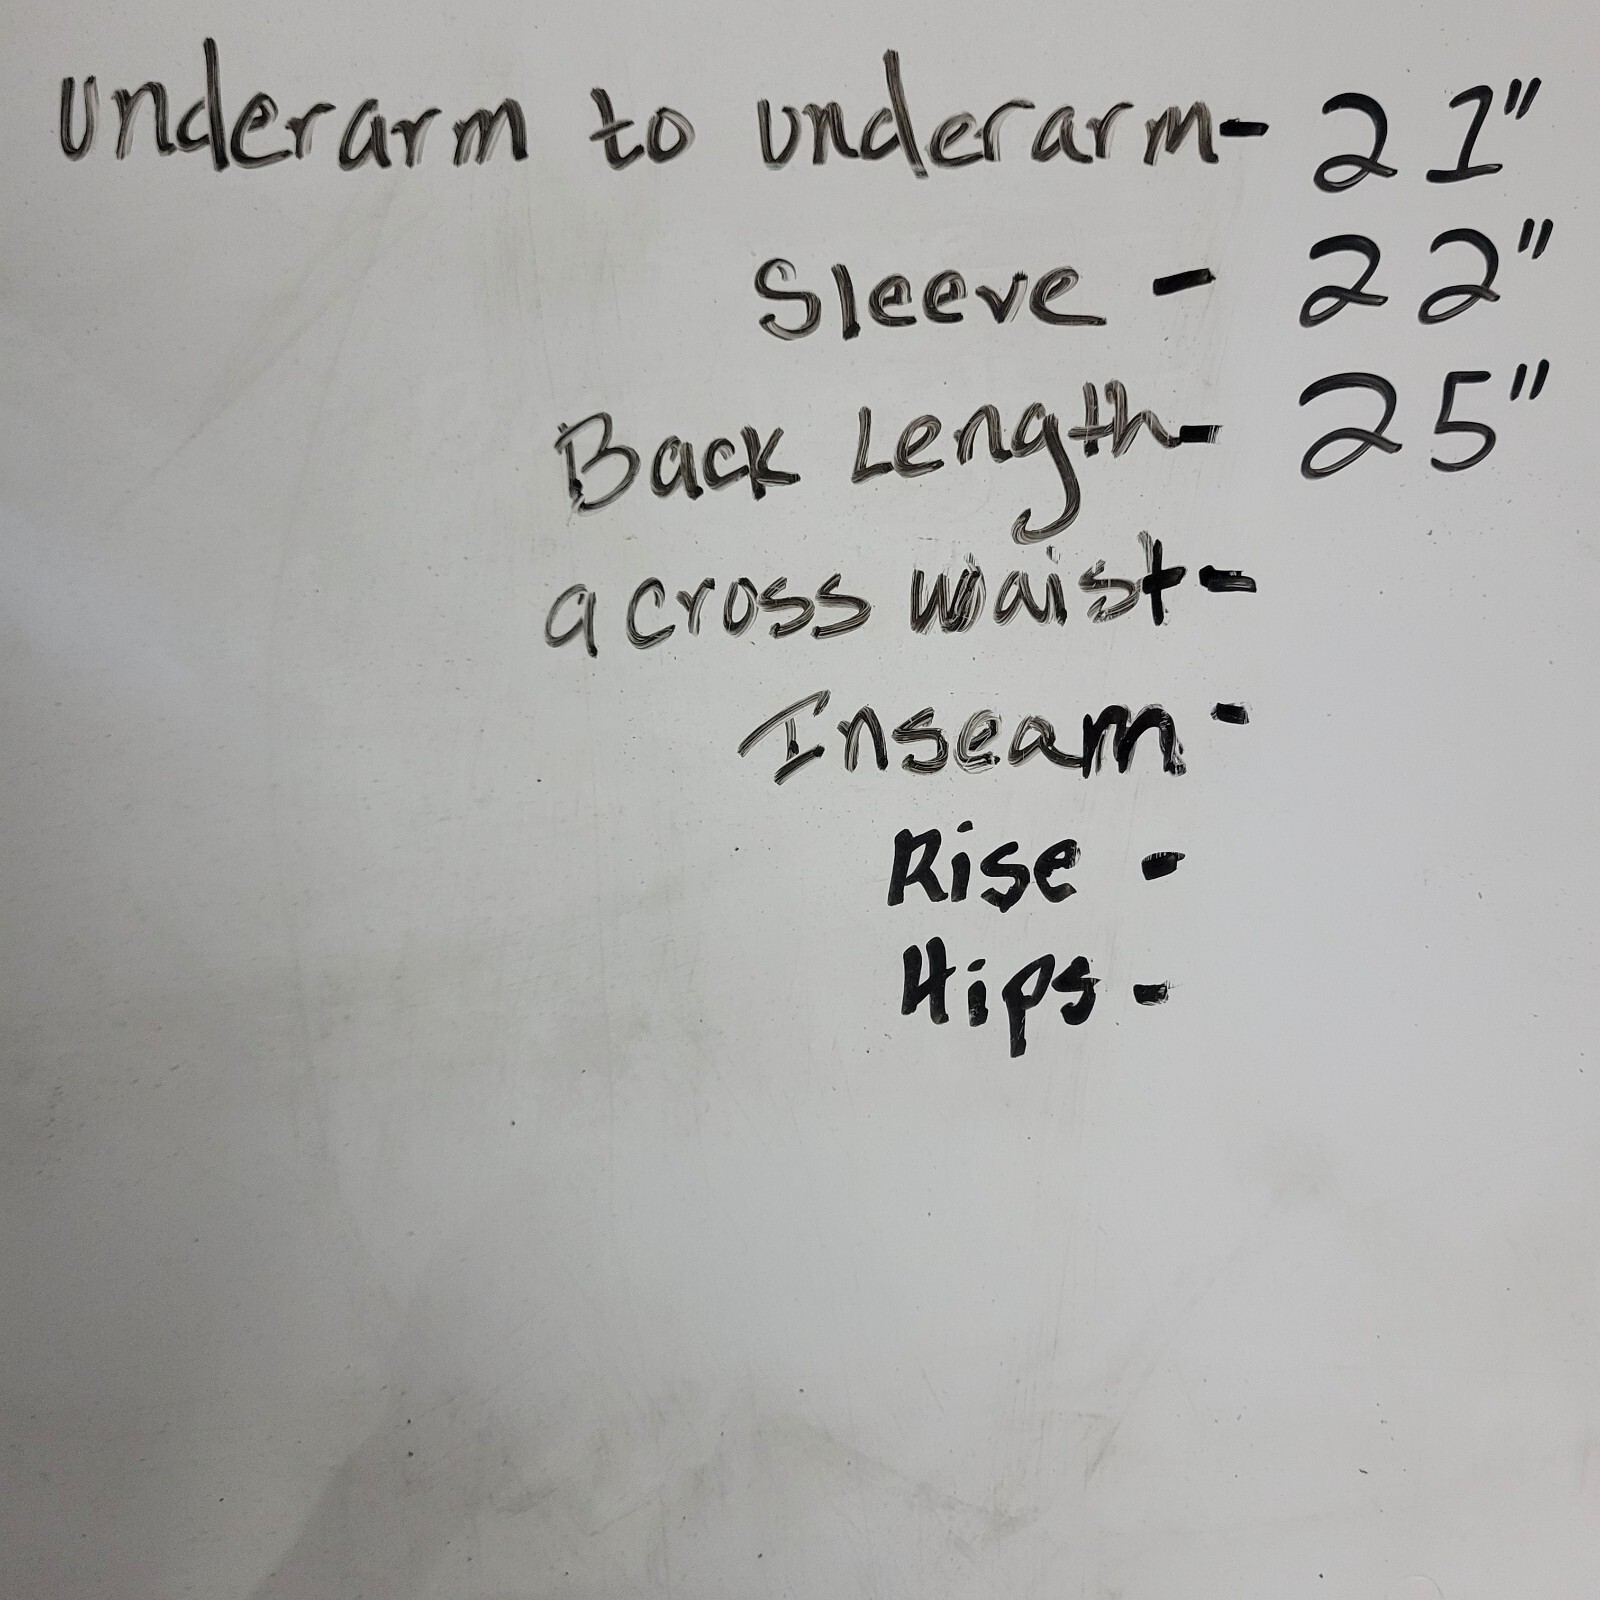 underarm to underarm- 21"
Sleeve - 22"
Back Length- 25"
across waist-
Inseam -
Rise -
Hips -